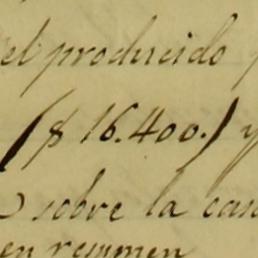 el producido
($ 16.400.) y
sobre la
en resumen